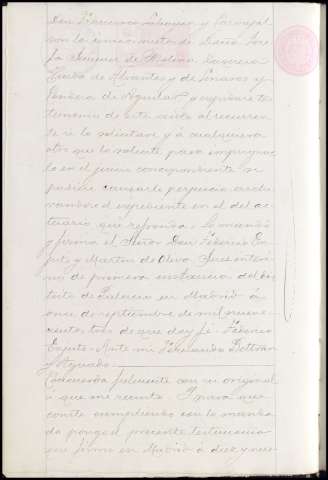 Don Francisco
con la
la Jimenez de Molina
Tineo de Alvantos y de Linares y
Pandeia de Aguilar y expidiese tes
timonio de este auto al recurren
te si lo solicitare y á cualquiera
otro que lo solicite para impugnar
lo en el juicio correspondiente si
pudiere causarle perjuicio archi
vandose el expediente en el del ac
tuario que refrenda. Lo mandó
y firma el Señor Don Federico En
juto y Martin de Oliva Juez interi
no de primera instancia del dis
trito de Palacio en Madrid á
once de septiembre de mil nueve
cientos tres de que doy fé. Federico
Enjuto. Ante mi Fernando Beltran
y Aguado.
Concuerda fielmente con su original
á que me remito. Y para que
conste cumpliendo con lo manda
do pongo el presente testimonio
que firmo en Madrid á diez y nue